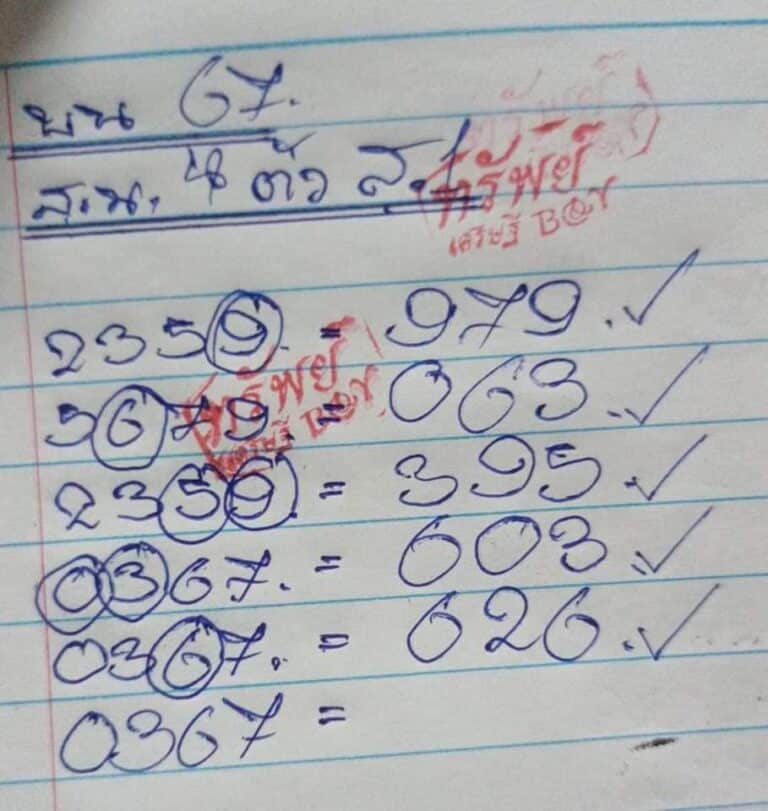 บน 67.
ส.น. 4 ตัว ส.1
ทรัพย์
เศรษฐี B@Y
2359. = 979. ✓
3679. = 063. ✓
ทรัพย์
เศรษฐี B@Y
2359. = 395. ✓
0367. = 603. ✓
0367. = 626. ✓
0367 =